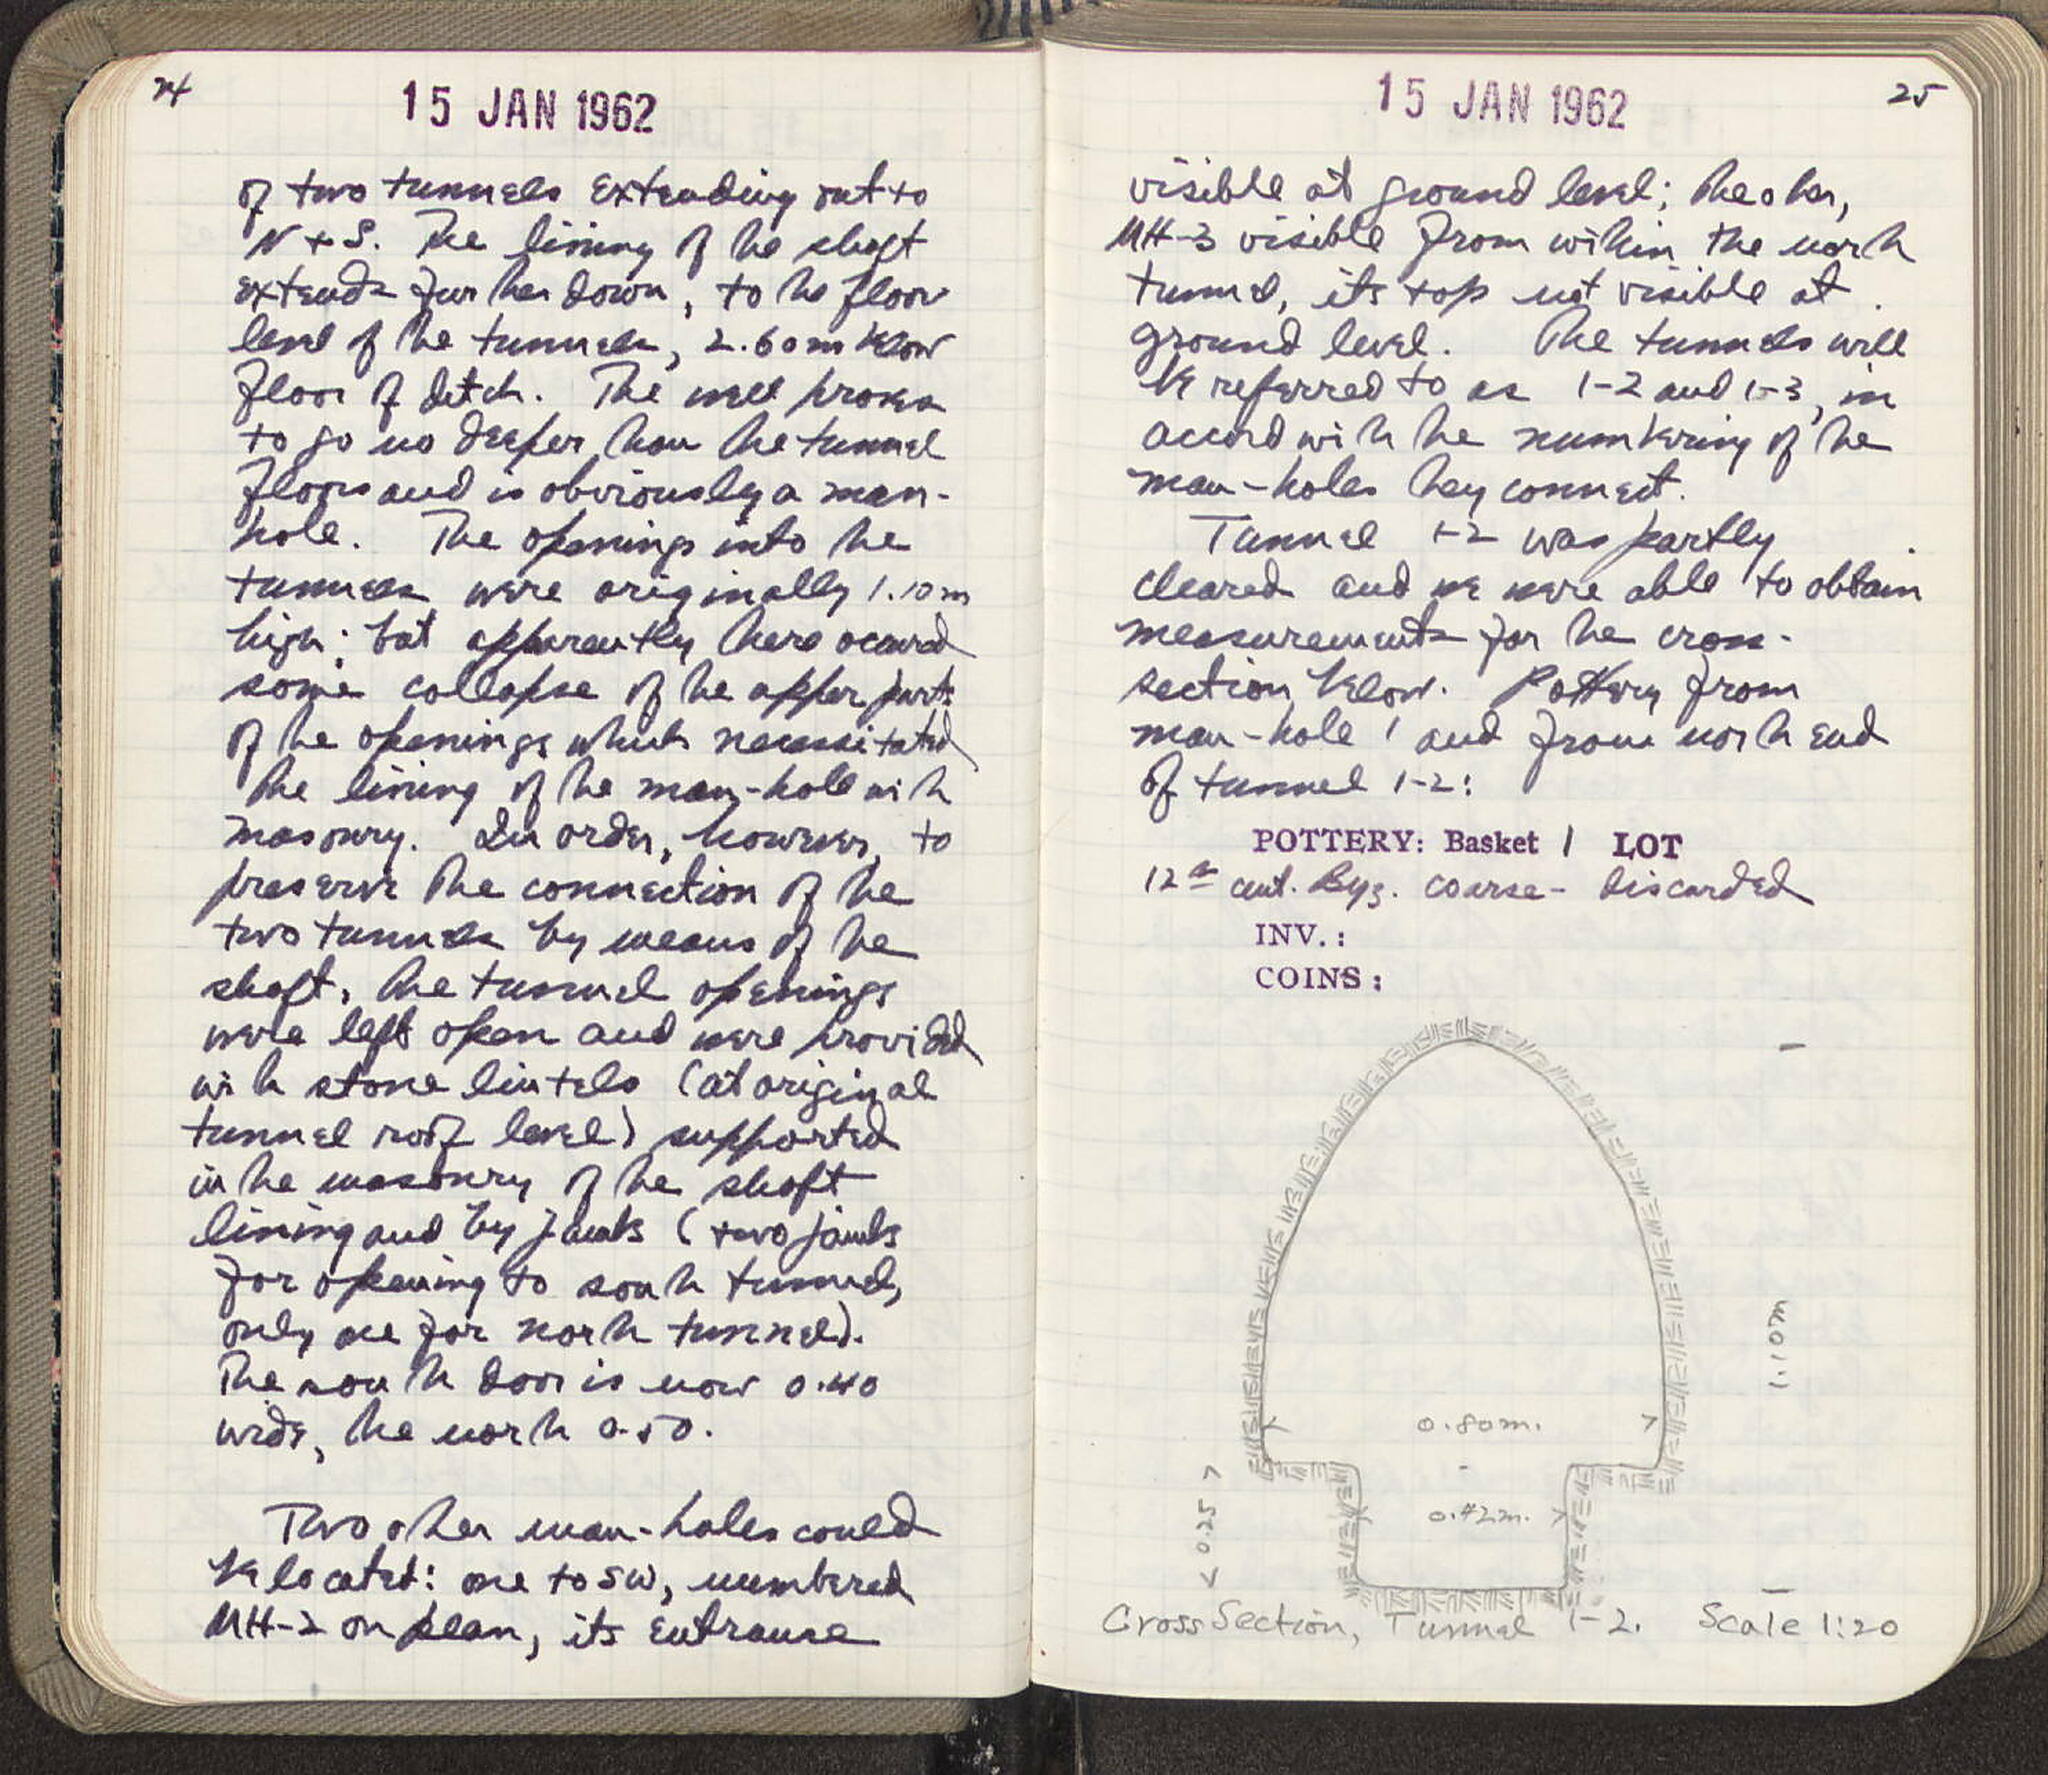 24
15 JAN 1962
of two tunnels extending out to
N + S. The lining of the shaft
extends further down, to the floor
level of the tunnels, 2.60m below
floor of ditch. The well proves
to go no deeper than the tunnel
floors and is obviously a man-
hole. The openings into the
tunnels were originally 1.10m
high; but apparently there occured
some collapse of the upper parts
of the openings which necessitated
the lining of the man-hole with
masonry. In order, however, to
preserve the connection of the
two tunnels by means of the
shaft, the tunnel openings
were left open and were provided
with stone lintels (at original
tunnel roof level) supported
in the masonry of the shaft
lining and by jambs (two jambs
for opening to south tunnel,
only one for north tunnel).
The south door is now 0.40
wide, the north 0.50.
Two other man-holes could
be located: one to SW, numbered
MH-2 on plan, its entrance
25
15 JAN 1962
visible at ground level; the other,
MH-3 visible from within the north
tunnel, its top not visible at
ground level. The tunnels will
be referred to as 1-2 and 1-3, in
accord with the numbering of the
man-holes they connect.
Tunnel 1-2 was partly
cleared and we were able to obtain
measurements for the cross-
section below. Pottery from
man-hole 1 and from north end
of tunnel 1-2:
POTTERY: Basket 1 LOT
12th cent. Byz. coarse - discarded
INV.:
COINS:
1.10m
0.80m.
0.25
0.42m.
Cross Section, Tunnel 1-2. Scale 1:20